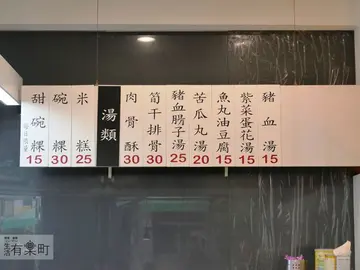 甜碗粿
15
碗粿
30
米糕
25
湯類
肉骨酥
30
筍干排骨
30
豬血腸子湯
25
苦瓜丸湯
20
魚丸油豆腐
15
紫菜蛋花湯
15
豬血湯
15
有窠町